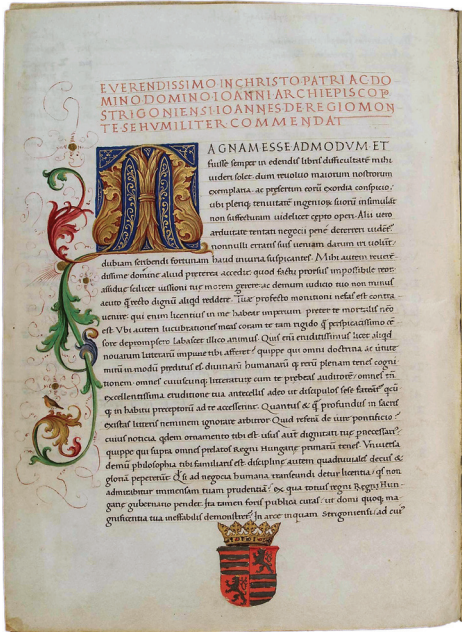 EVERENDISSIMO IN CHRISTO PATRI AC DO
MINO DOMINO IOANNI ARCHIEPISCOPO
STRIGONIENSI IOANNES DE REGIOMON
TE SE HVMILITER COMMENDAT
MAGNAM ESSE ADMODVM ET
fuisse semper in edendis libris difficultatē mihi
uideri solet: dum reuoluo maiorum nostrorum
exemplaria: ac presertim eorū exordia conspicio.
ubi pleriq; tenuitatē ingeniorū suorū insimulāt
non suffecturam uidelicet cępto operi. Alii uero
arduitate tentati negocii pene deterreri uidēt
nonnulli erratis suis ueniam darum iri uolūt:
dubiam scribendi fortunam haud iniuria suspicantes. Mihi autem reuerē
dissime domine aliud preterea accedit:
assidue scilicet iussioni tuę morem gerere: ac demum iudicio tuo non minus
acuto q̄ recto dignū aliqd reddere.
est. Vbi autem lucubrationes meas coram te tam rigido q̄ perspicacissimo cē
sore deprompsero labascet illico animus. Quis enī eruditissimus licet aliqd
nouarum litterarū impune tibi afferet:
tionem: omnes cuiuscunq; litteraturę
excellentissima eruditione tua antecellas adeo ut discipulos sese
in habitu preceptorū ad te accesserint. Quantus & q̄ profundus in sacris
existas litteris neminem ignorare arbitror. Quid referā de iure pontificio
cuius noticia
quippe qui supra omnes prelatos Regni Hungarię primatū tenes. Vniuersa
demū philosophia tibi familiaris est: disciplinę autem quadruuiales decus &
gloriā pepererūt. Q si ad negocia humana transeundi detur licentia: qs non
admirabitur immensam tuam prudentiā: ex qua totius regni Regis Hun
garię gubernatio pendet. Ita tamen foris publica curas: ut domi quoq; ma
gnificentia tua ineffabilis demonstret. In arce inquam Strigoniensi: ad cuiꝰ